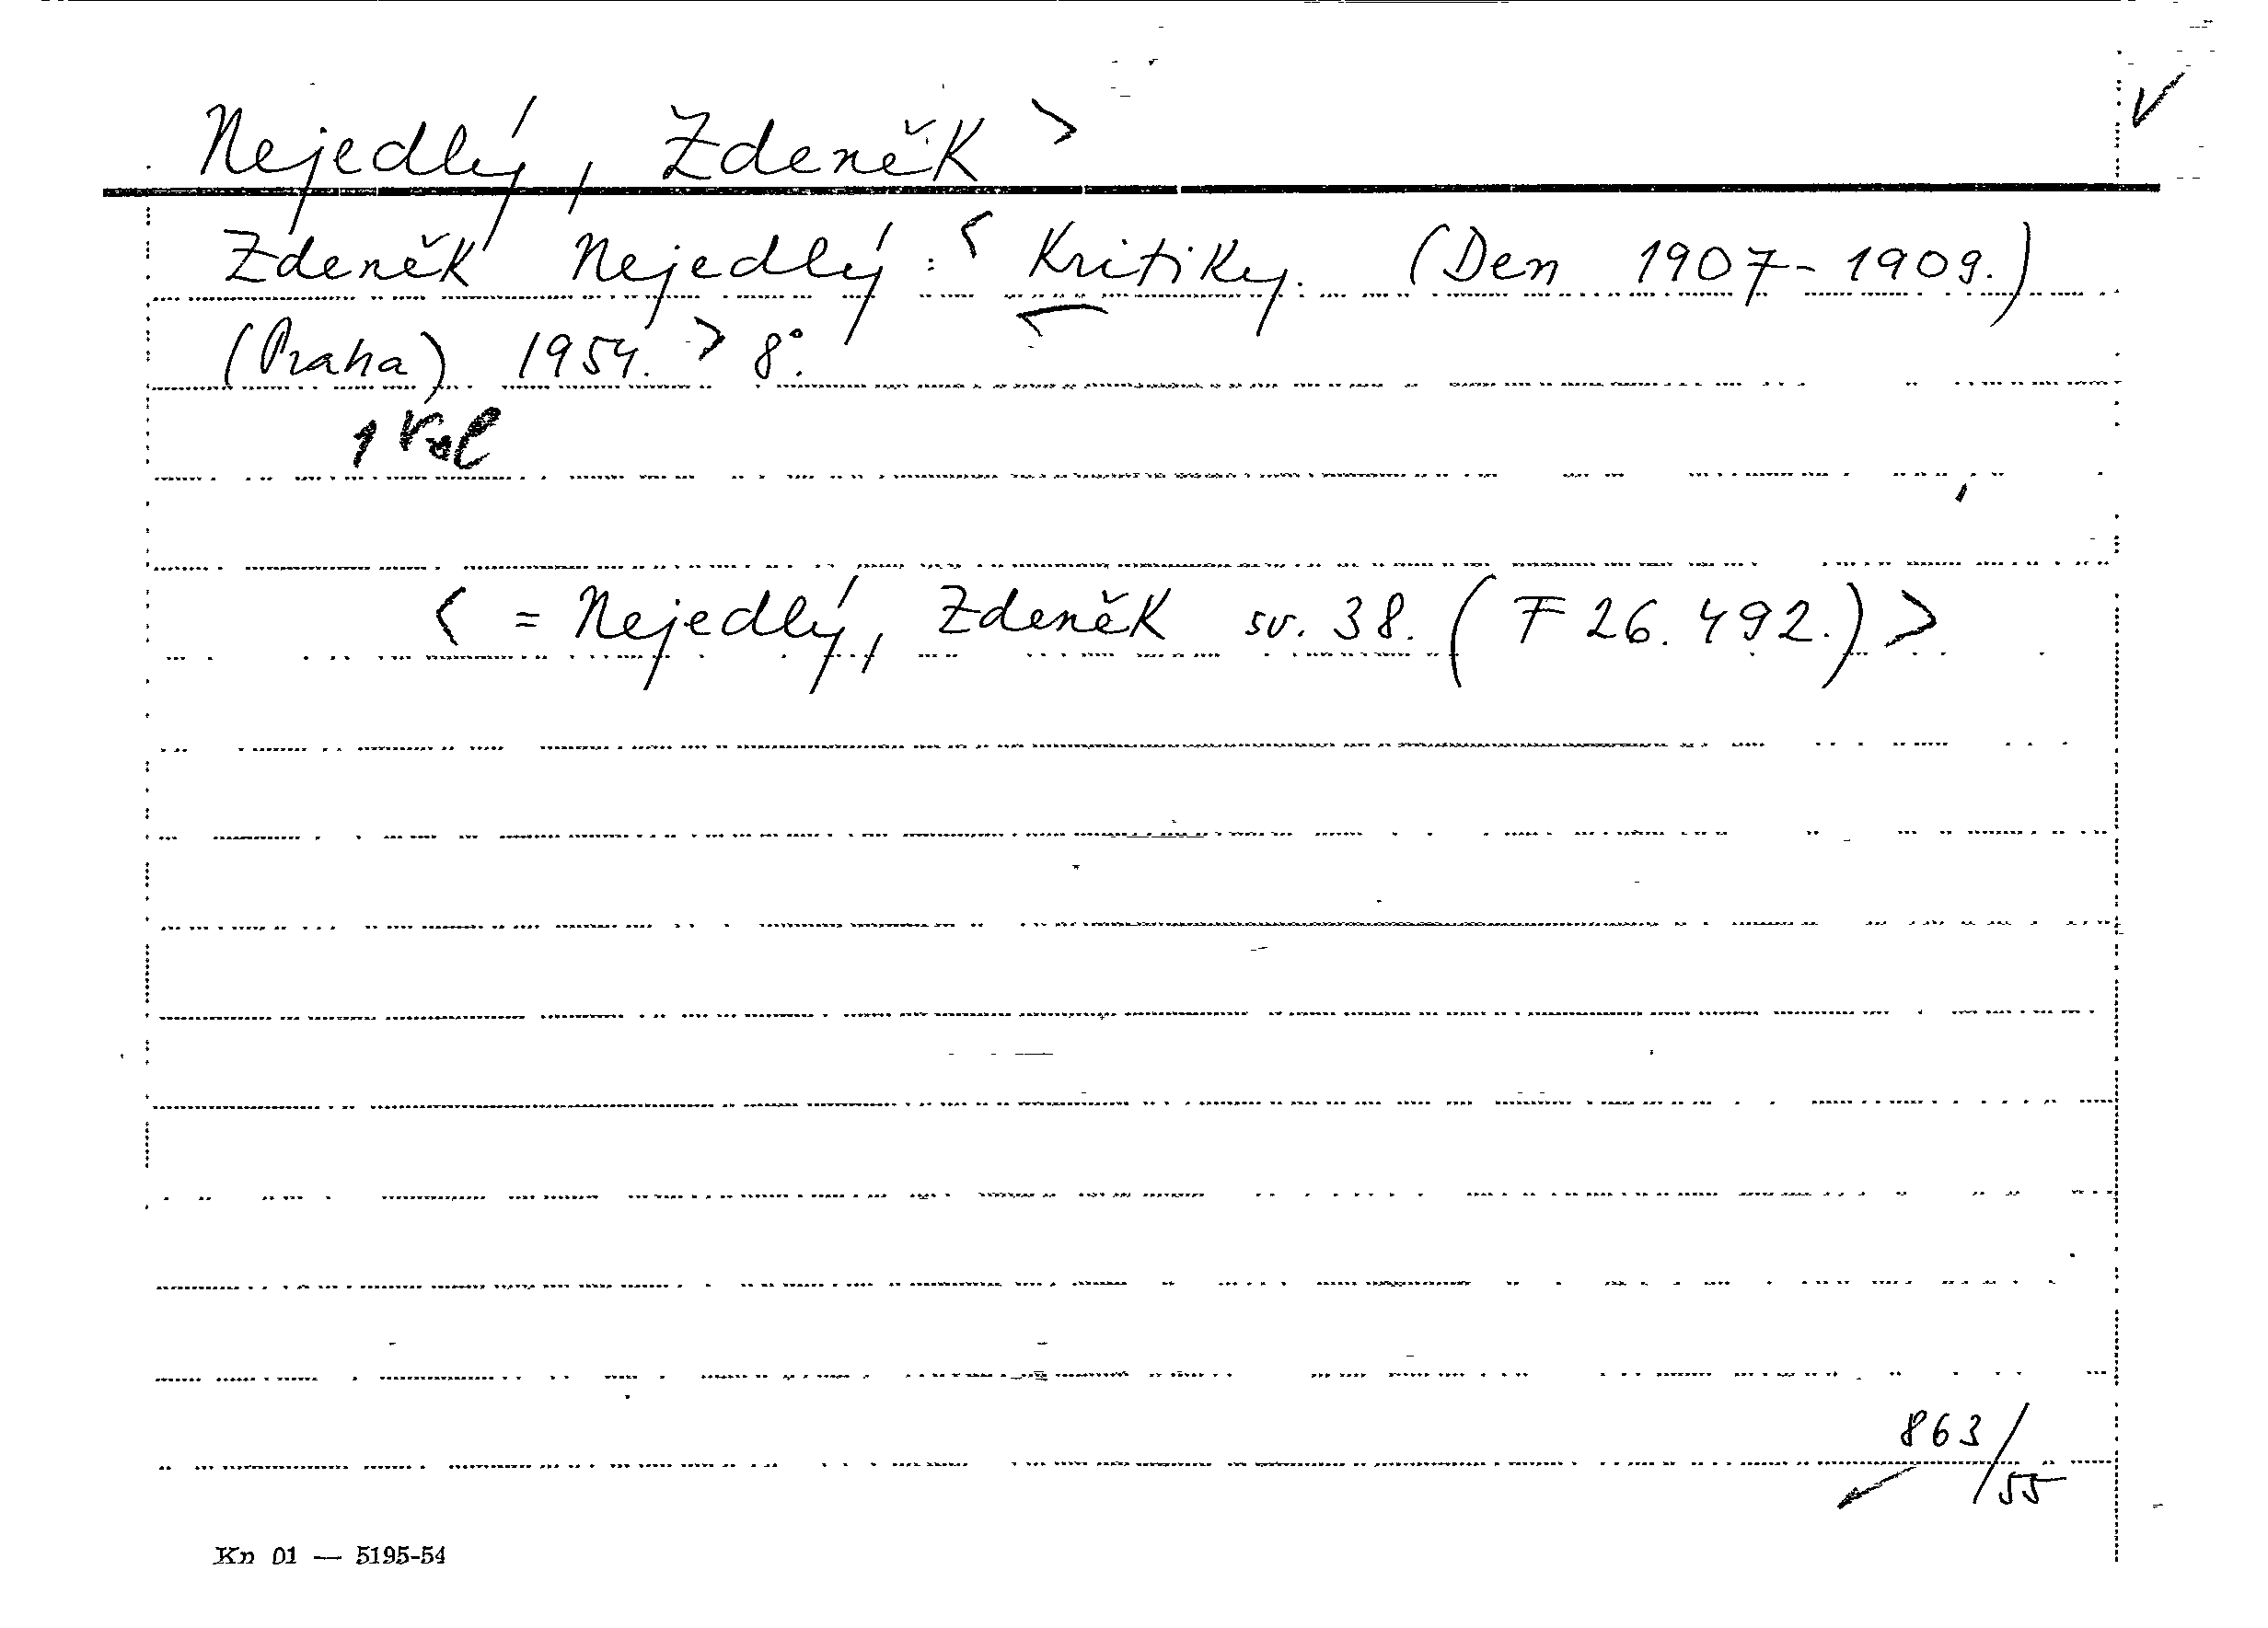 Nejedlý, Zdeněk >
Zdeněk Nejedlý: < Kritiky. (Den 1907-1909.)
(Praha) 1954. > 8°.
1 Vol
< = Nejedlý, Zdeněk sv. 38. (F 26.492.) >
863/55
Kn 01 — 5195-54